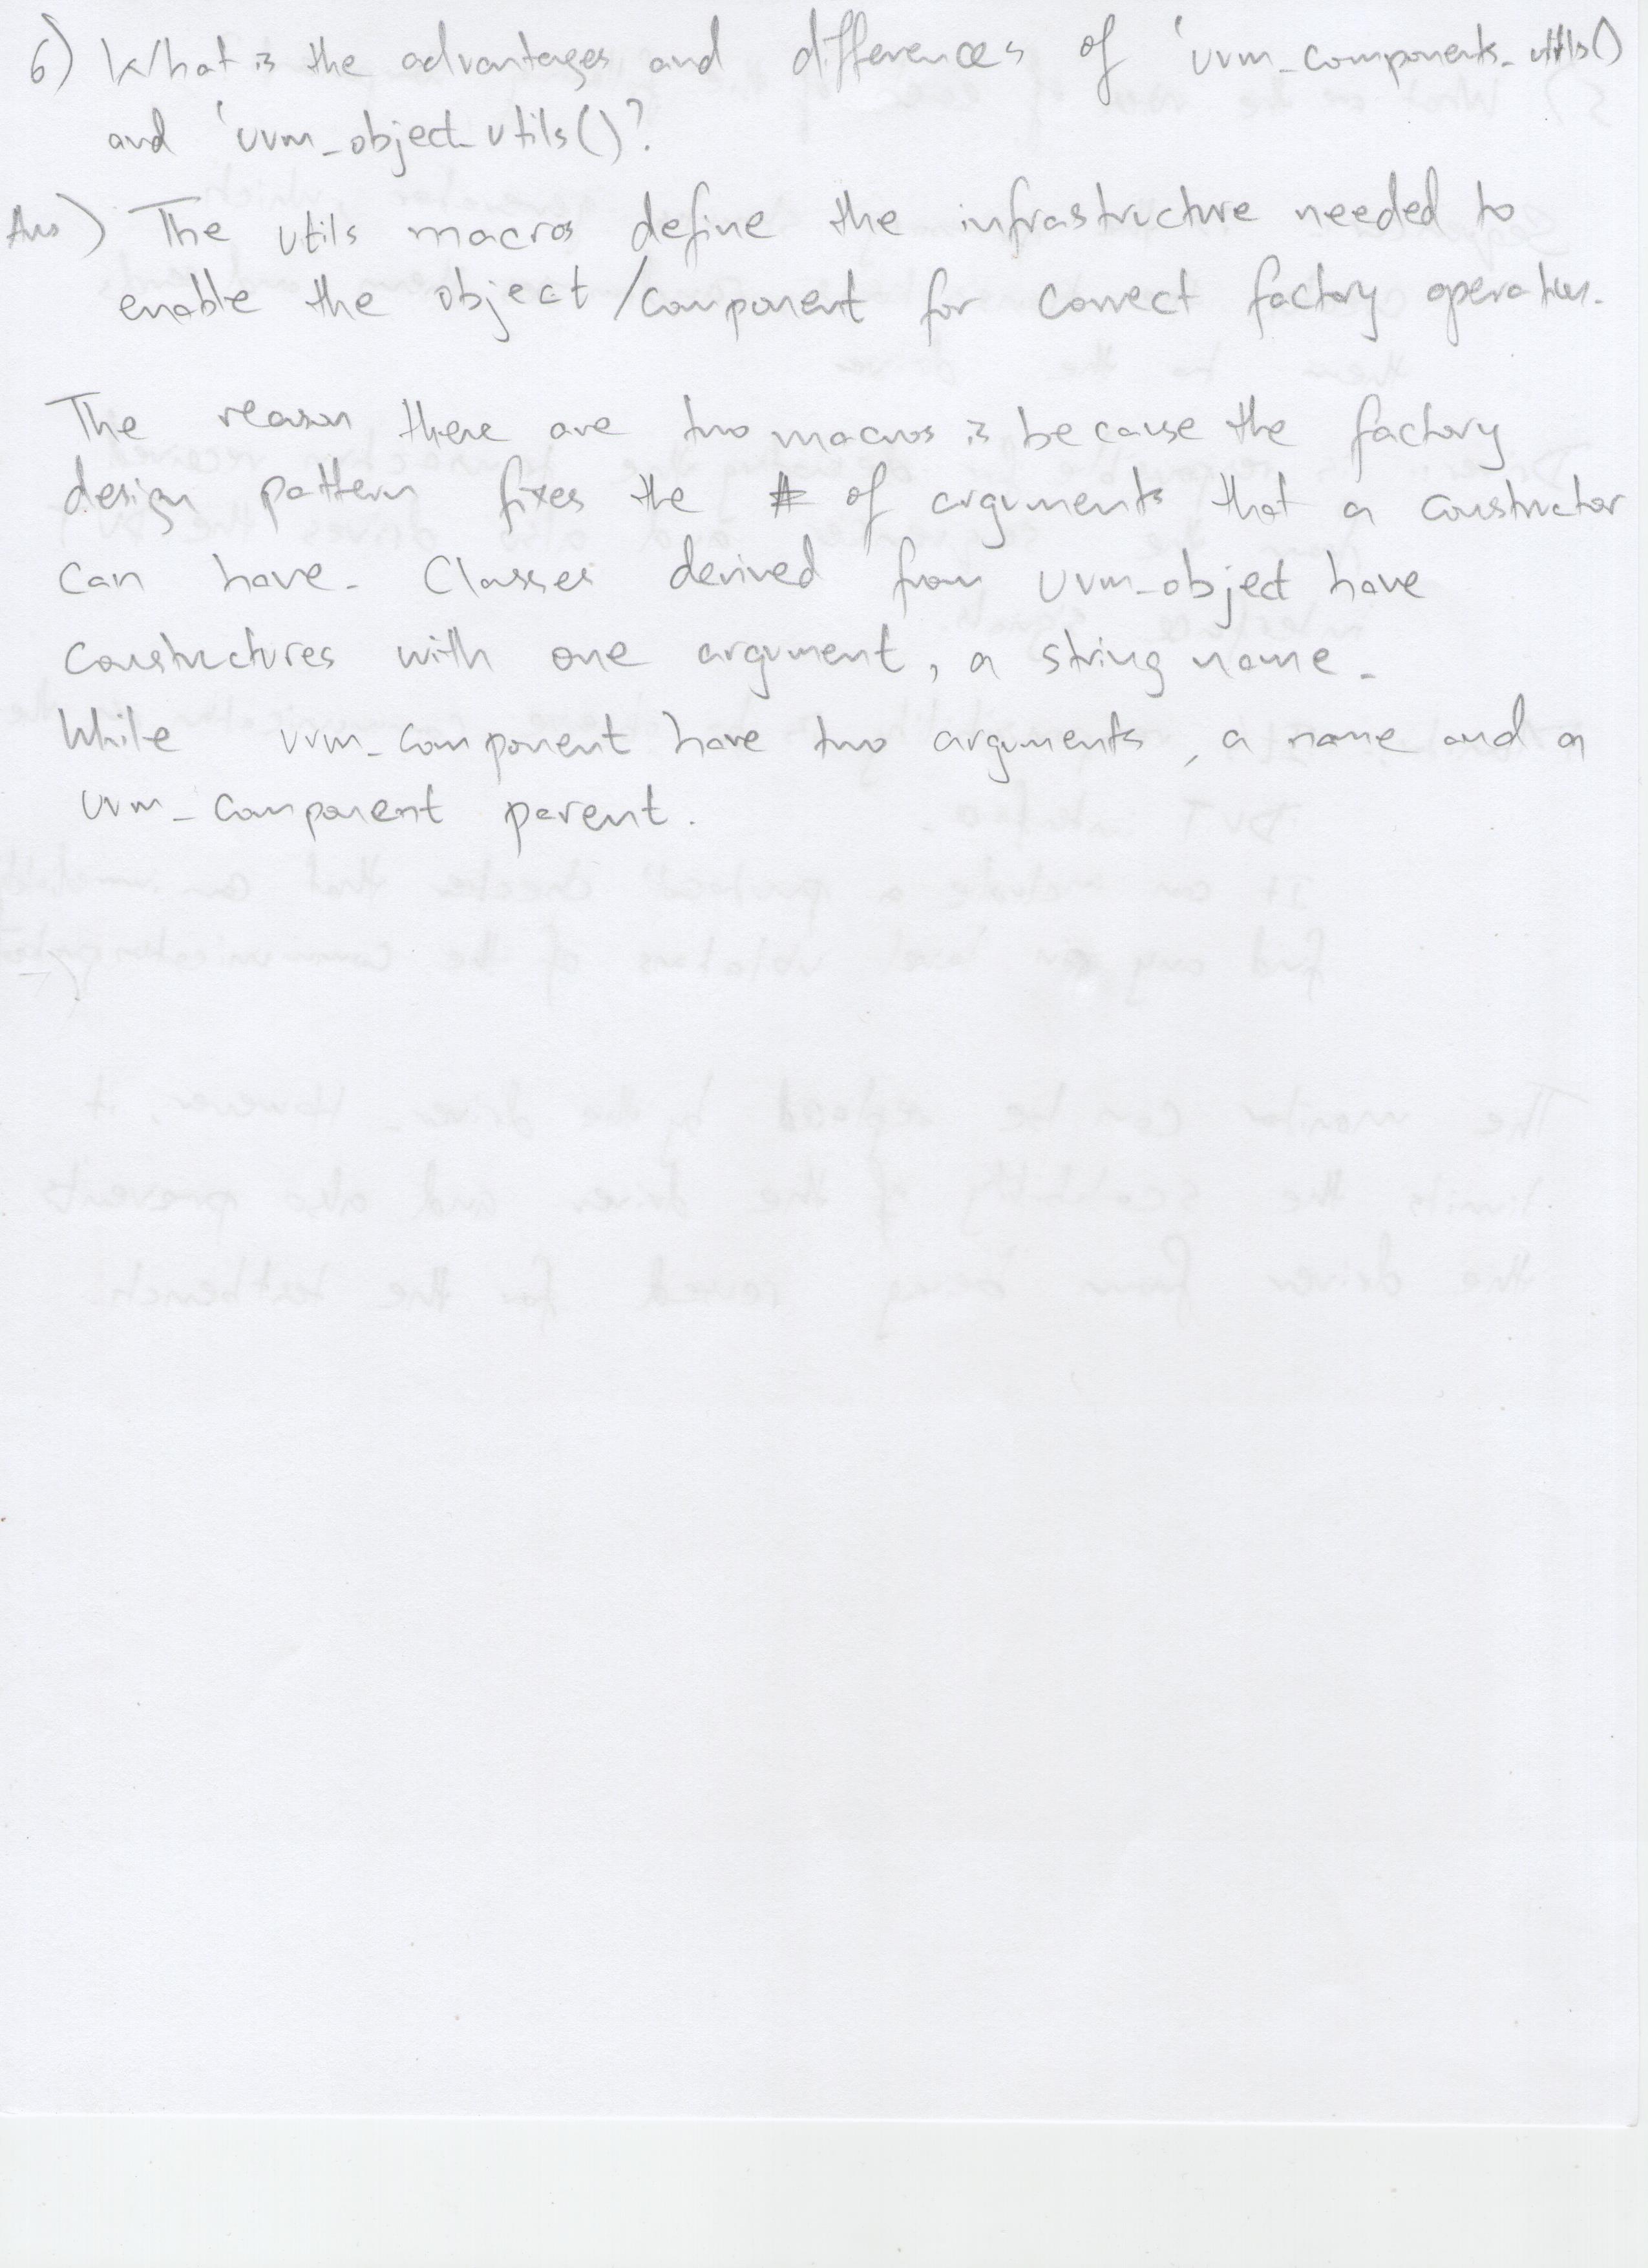 6) What is the advantages and differences of 'uvm_components_utils()
and 'uvm_object_utils()?
Ans) The utils macros define the infrastructure needed to
enable the object/component for correct factory operation.
The reason there are two macros is because the factory
design pattern fixes the # of arguments that a constructor
can have. Classes derived from uvm_object have
constructures with one argument, a string name.
While uvm_component have two arguments, a name and a
uvm_component parent.